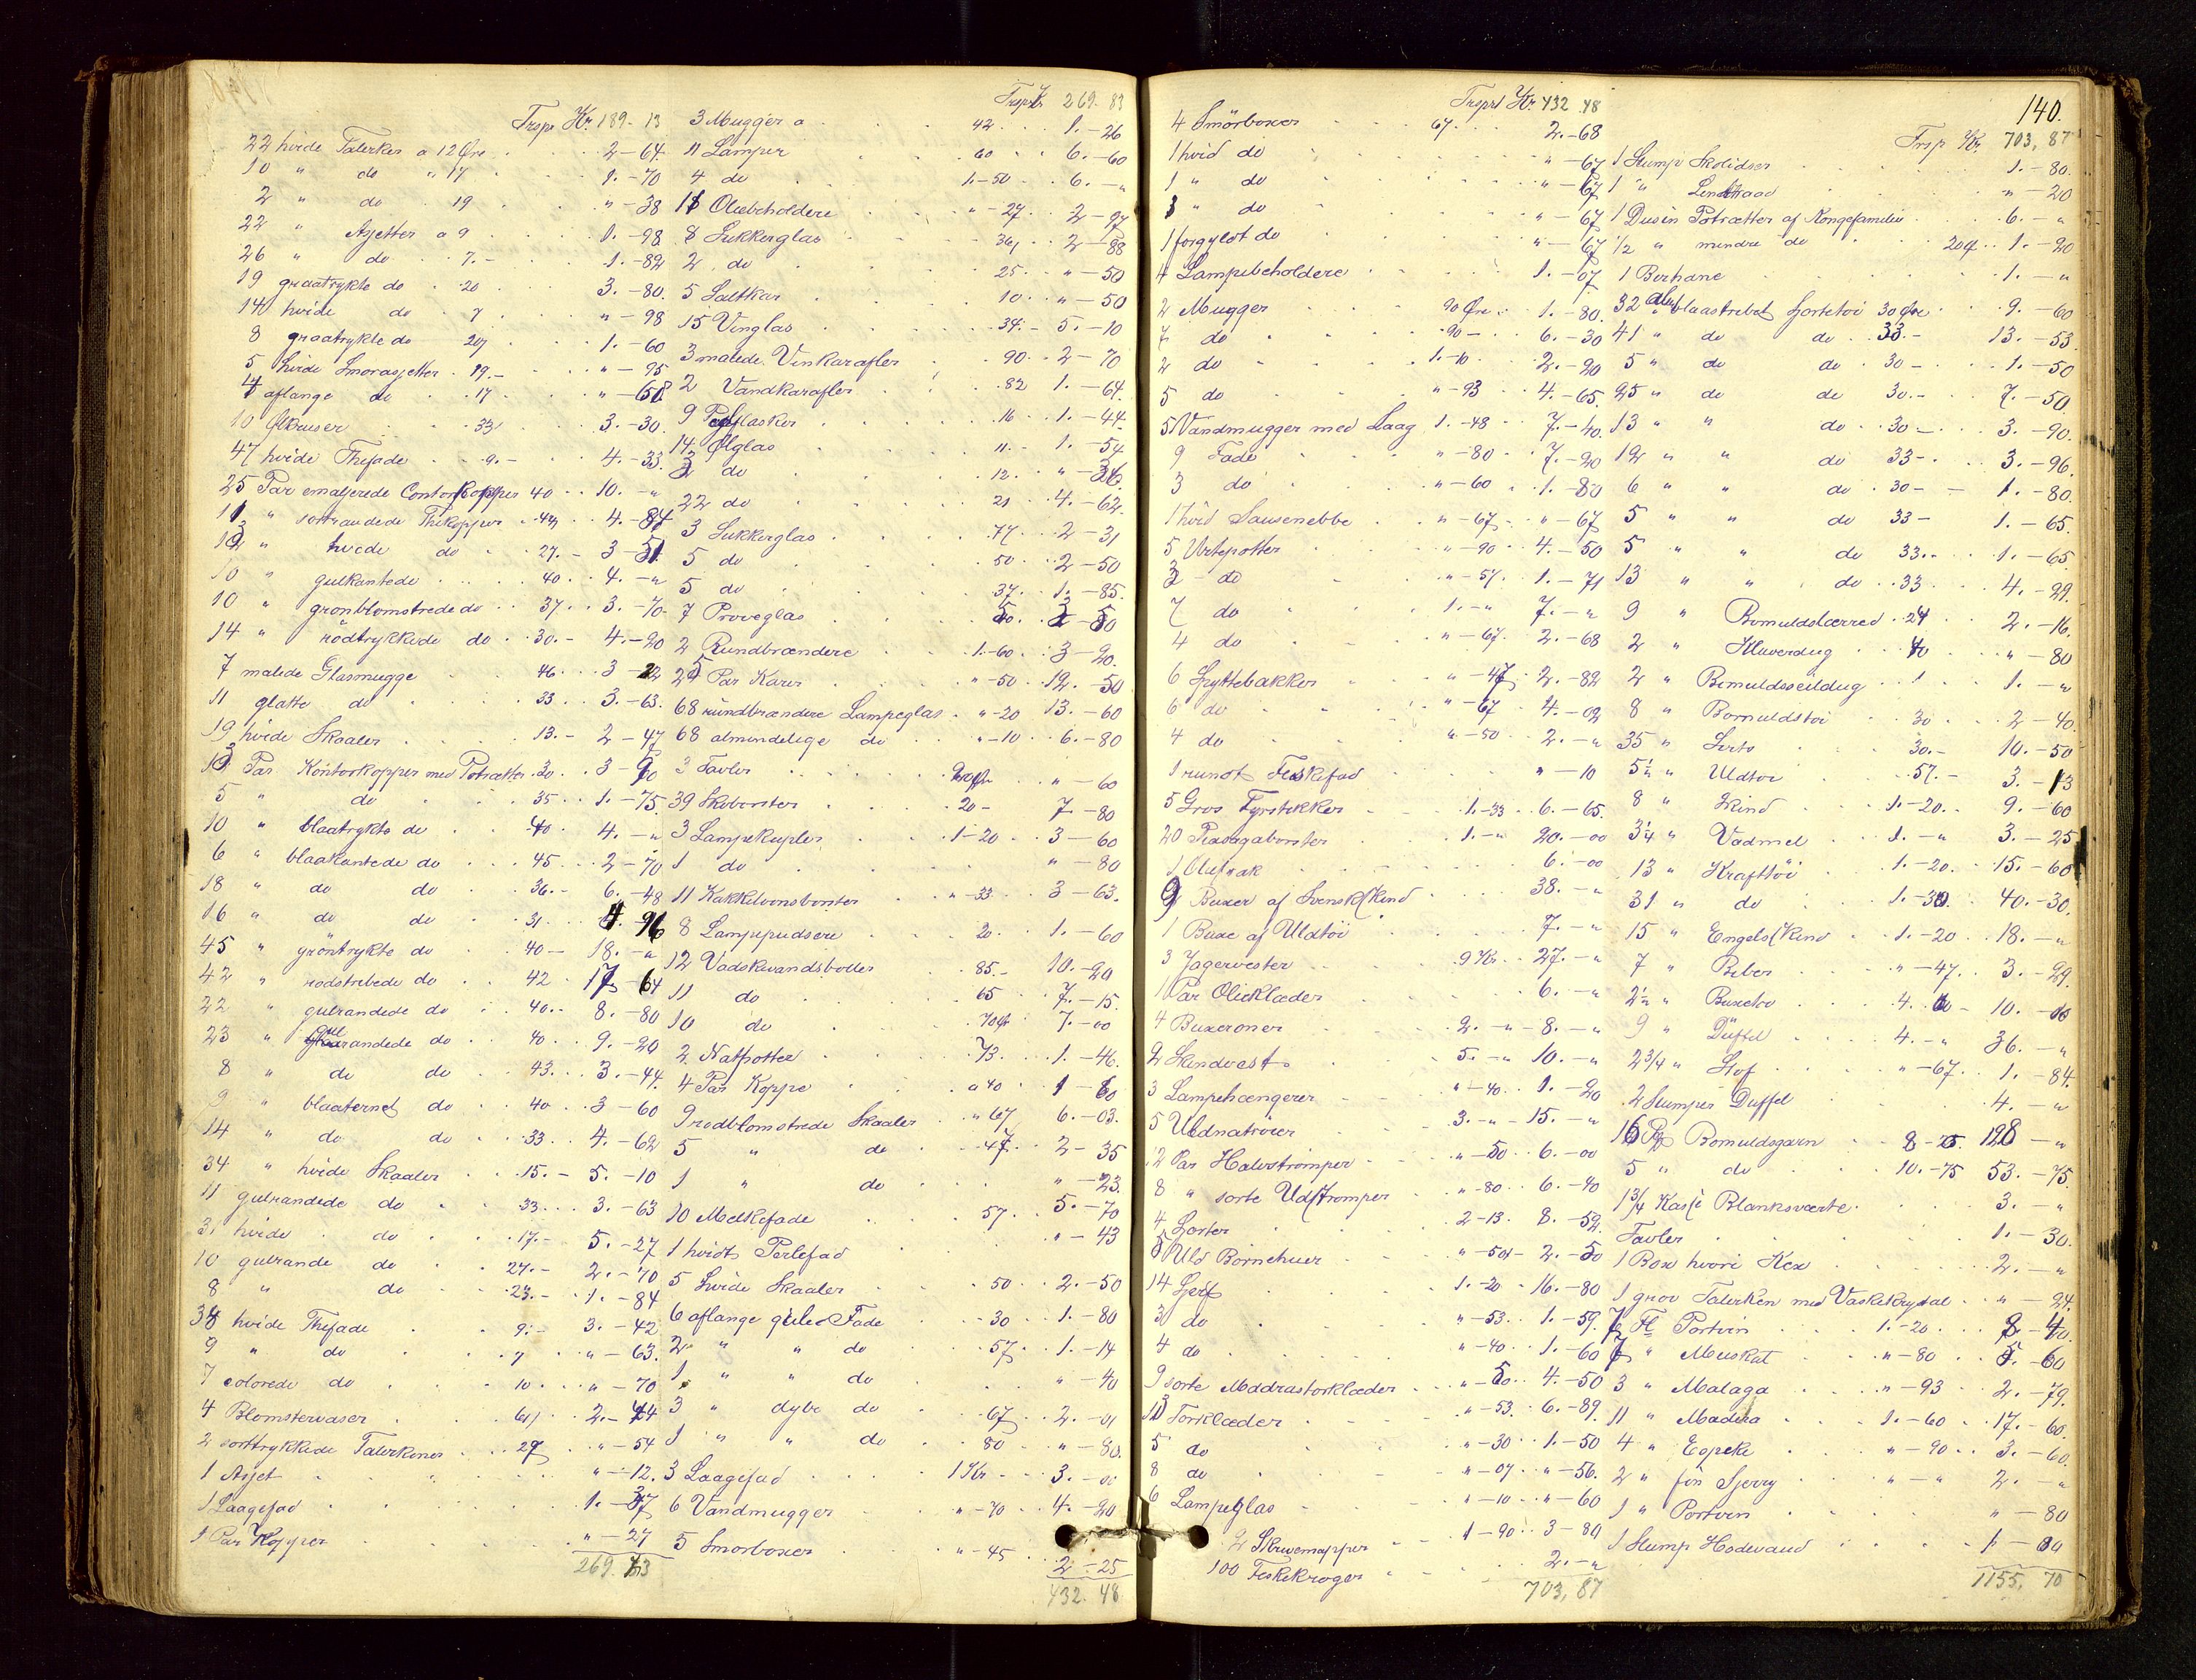 Trsp Kr. 189 - 13
22 hvide Talerker a 12 Øre 2 - 64.
10 " do " 17 1. - 70
2 " do . 19 " - 38
22 " Asjetter a 9 1. - 98
26 " do . 7. - 1. - 82
19 graatrykte do . 20 3. - 80.
14 hvide do . 7 " - 98
8 graatrykte do 20 1. - 60
5 hvide Smørasjetter . 19. - " - 95
4 aflange do . 17 " - 68
10 Ølkruser 33 3. - 30.
47 hvide Thefade . 9. - 4. - 33.
25 Par emaljerede Contorkopper 40 10. - "
11 " sortrandede Thekopper . 44 4. - 84
13 " hvide do . 27. - 3 - 51
10 " gulkantede 40 4. - "
10 " grønblomstrede do 37 3. - 70.
14 " rödtrykkede do . 30. - 4. - 20
7 malede Glasmugge 46 3 - 22
11 glatte do 33 3. - 63.
19 hvide Skaaler 13. - 2 - 47
13 Par Kontorkopper med Potrætter . 30 3 - 90
5 " do 35 1. - 75
10 " blaatrykte do 40 4. - "
6 " blaakantede do 45 2 - 70
18 " do do 36. - 6. - 48
16 " do do 31 4 96
45 " grøntrykte do 40 - 18. - "
42 " rodstribede do 42 17 - 64
22 " gulrandede do 40. - 8. - 80
23 " gulrandede do 40 9. - 20
8 " do do 43 3. - 44.
9 " blaaternet do 40 3 - 60
14 " do do 33 4. - 62
34 " hvide Skaaler 15. - 5. - 10
11 gulrandede do 33 3. - 63
31 hvide do 17. - 5. - 27
10 gulrande do 27. - 2. - 70
8 " do 23. - 1. - 84
38 hvide Thefade 9. - 3. - 42
9 " do 7 " - 63.
7 colorede do 10 " - 70
4 Blomstervaser 61 2. - 44
2 sorttrykkede Talerkener 27 " - 54
1 Asjet " - 12.
1 Laagefad 1. - 37
1 Par Kopper " - 27
269. 83
Trsp Kr 269. 83
3 Mugger a 42 1. - 26
11 Lamper 60 6. - 60
4 do 1. - 50 6. - "
11 Oliebeholdere " - 27 2 - 97
8 Sukkerglas 36 2 - 88
2 do 25 " - 50
5 Saltkar 10 " - 50
15 Vinglas 34 - 5. - 10
3 malede Vinkarafler 90 2 - 70
2 Vandkarafler 82 1. - 64.
9 Pæglflasker 16 1. - 44.
14 Ølglas 11. - 1. - 54
3 do 12. " - 36.
22 do 21 4. - 62.
3 Sukkerglas 77 2 - 31
5 do 50 2 - 50
5 do 37 1. - 85.
7 Prøveglas 50 3 - 50
2 Rundbrændere 1. - 60 3 - 20.
25 Par Karer " - 50 12. - 50
68 rundbrændere Lampeglas " - 20 13. - 60
68 almindelige do " - 10 6. - 80
3 Tavler 20 Øre " - 60
39 Skobørster 20 - 7 - 80
3 Lampekupler 1 - 20 3 - 60
1 do " - 80
11 Kakkelovnsbørster " - 33 3 - 63.
8 Lampepudsere 20 1. - 60
12 Vadskevandsboller 85. - 10. - 20
11 do 65 7. - 15.
10 do 70 Ør 7. - 00
2 Natpotter 73 1. - 46.
4 Par Koppe a 40 1 - 60
9 rødblomstrede Skaaler " 67 6. - 03.
5 " do 47. 2 - 35
1 " do " - 23.
10 Melkefade 57 5. - 70
1 hvidt Perlefad " - 43
5 hvide Skaaler 50 2. - 50
6 aflange gule Fade 30 1. - 80
2 " " do 57 1. - 14
1 " " do " - 40
3 " dybe do 67 2. - 01
1 " " do 80 " - 80.
3 Laagefad 1 Kr 3. - 00
6 Vandmugger " - 70 4. - 20
5 Smørboxer " - 45 2 - 25
432. 48
140.
Trsprt Kr. 432. 48
4 Smörboxer 67 2. - 68
1 hvid do " - 67
1 " do " - 67
1 " do " - 67
1 forgyldt do " - 67
4 Lampebeholdere 1. - 07
2 Mugger 90 Øre 1. - 80.
7 do 90 - 6. - 30
2 do 1. - 10 2. - 20
5 do " - 93 4. - 65
5 Vandmugger med Laag 1. - 48 7. - 40.
9 Fade " - 80 7. - 20
3 do " - 60 1. - 80
1 hvid Sausenebbe " - 67 " - 67
5 Urtepotter " - 90 4. - 50
3 do " - 57 1. - 71
7 do 1. - " 7. - "
4 do " - 67. 2. - 68
6 Spyttebakker " - 47 2. - 82
6 do " - 67 4. - 02
4 do " - 50 2. - "
1 rundt Feskefad " - 10
5 Gros Fyrstikker 1. - 33 6. - 65.
20 Piasavaborster 1. - " 20. - 00
1 Uldfrak 6. - 00
9 Buxer af Svenskskind 38. - "
1 Buxe af Uldtöi 7. - "
3 Jagervester 9 Kr 27. - "
1 Par Olieklæder 6. - "
4 Buxeroner 2. - " 8. - "
2 Skindvest 5. - " 10. - "
3 Lampehængerer " - 40 1. - 20
5 Uldnattröier 3. - " 15. - "
12 Par Halvstrømper " - 50 6. - 00
8 " sorte Uldstrømper " - 80 6. - 40
4 Skjorter 2 - 13. 8. - 52.
5 Uld Börnehuer " - 50 2. - 50
14 Skjerf 1. - 20 16. - 80
3 do " - 53. 1. - 59.
4 do " - 40 1. - 60
9 sorte Madrastorklæder " - 50 4. - 50
13 Torklæder " - 53. 6. - 89.
5 do " - 30 1. - 50
8 do " - 07 " - 56.
6 Lampeglas " - 10 " - 60
2 Skrivemapper 1 - 90 3 - 80
100 Feskekroger 2. - "
703, 87
Trsp Kr. 703, 87
1 Stump Skolidser 1. - 80.
1 " Lerretraad " - 20
1 Dusin Potrætter af Kongefamilien 6. - "
1/2 " mindre do 20 Ø. 1. - 20
1 Borhane 1. - "
32 Alen blaastribet Skjortetöi 30 Øre 9. - 60
41 " do do 33. - 13. - 53.
5 " do do . 30 - 1. - 50
25 " do do 30. - 7. - 50
13 " " do . 30 - 3. - 90.
12 " " do 33 - 3. - 96.
6 " " do . 30 - 1. - 80.
5 " " do 33 - 1. - 65.
5 " " do 33. 1. - 65
13 " " do . 33 4. - 29.
9 " Bomuldslærred . 24 2. - 16.
2 " Huverdug 40 " - 80
2 " Bomuldsseildug 1 1. - "
8 " Bomuldstöi 30 2 - 40.
35 " Sirts 30. - 10. - 50
5 1/2 " Uldtöi 57. - 3. - 13
8 " Skind 1. - 20. 9. - 60
3 1/4 " Vadmel 1. - " 3. - 25
13 " Krafttöi 1. - 20. 15. - 60
31 " do 1. - 30. 40. - 30.
15 " Engelsskind 1. - 20 18. - "
7 " Biber " - 47. 3. - 29.
2 1/2 " Buxetöi 4. 00 - 10. - 00
9 " Düffel 4. - " 36. - "
2 3/4 " Stof " - 67 1. - 84.
2 Stumper Duffel 4. - "
16 Pk Bomuldsgarn 8 - " 128 - "
5 " do 10. - 75 53. - 75.
1 3/4 Kasse Blanksværte 3. - "
Tavler 1. - 30.
1 Box hvori Kex 2. - "
1 grov Talerken med Vaskekrystal " - 24.
7 Fl Portvin 1. - 20 8 - 40.
7 " Muskat " - 80 5. - 60
3 " Malaga " - 93 2. - 79.
11 " Madeira 1. - 60 17. - 60.
4 " Eqpeke " - 90 3. - 60.
2 " fin Sjerry " - " 2. - "
1 " Portvin " - 80
1 Stump Hodevaud 1 - 00
1155, 70